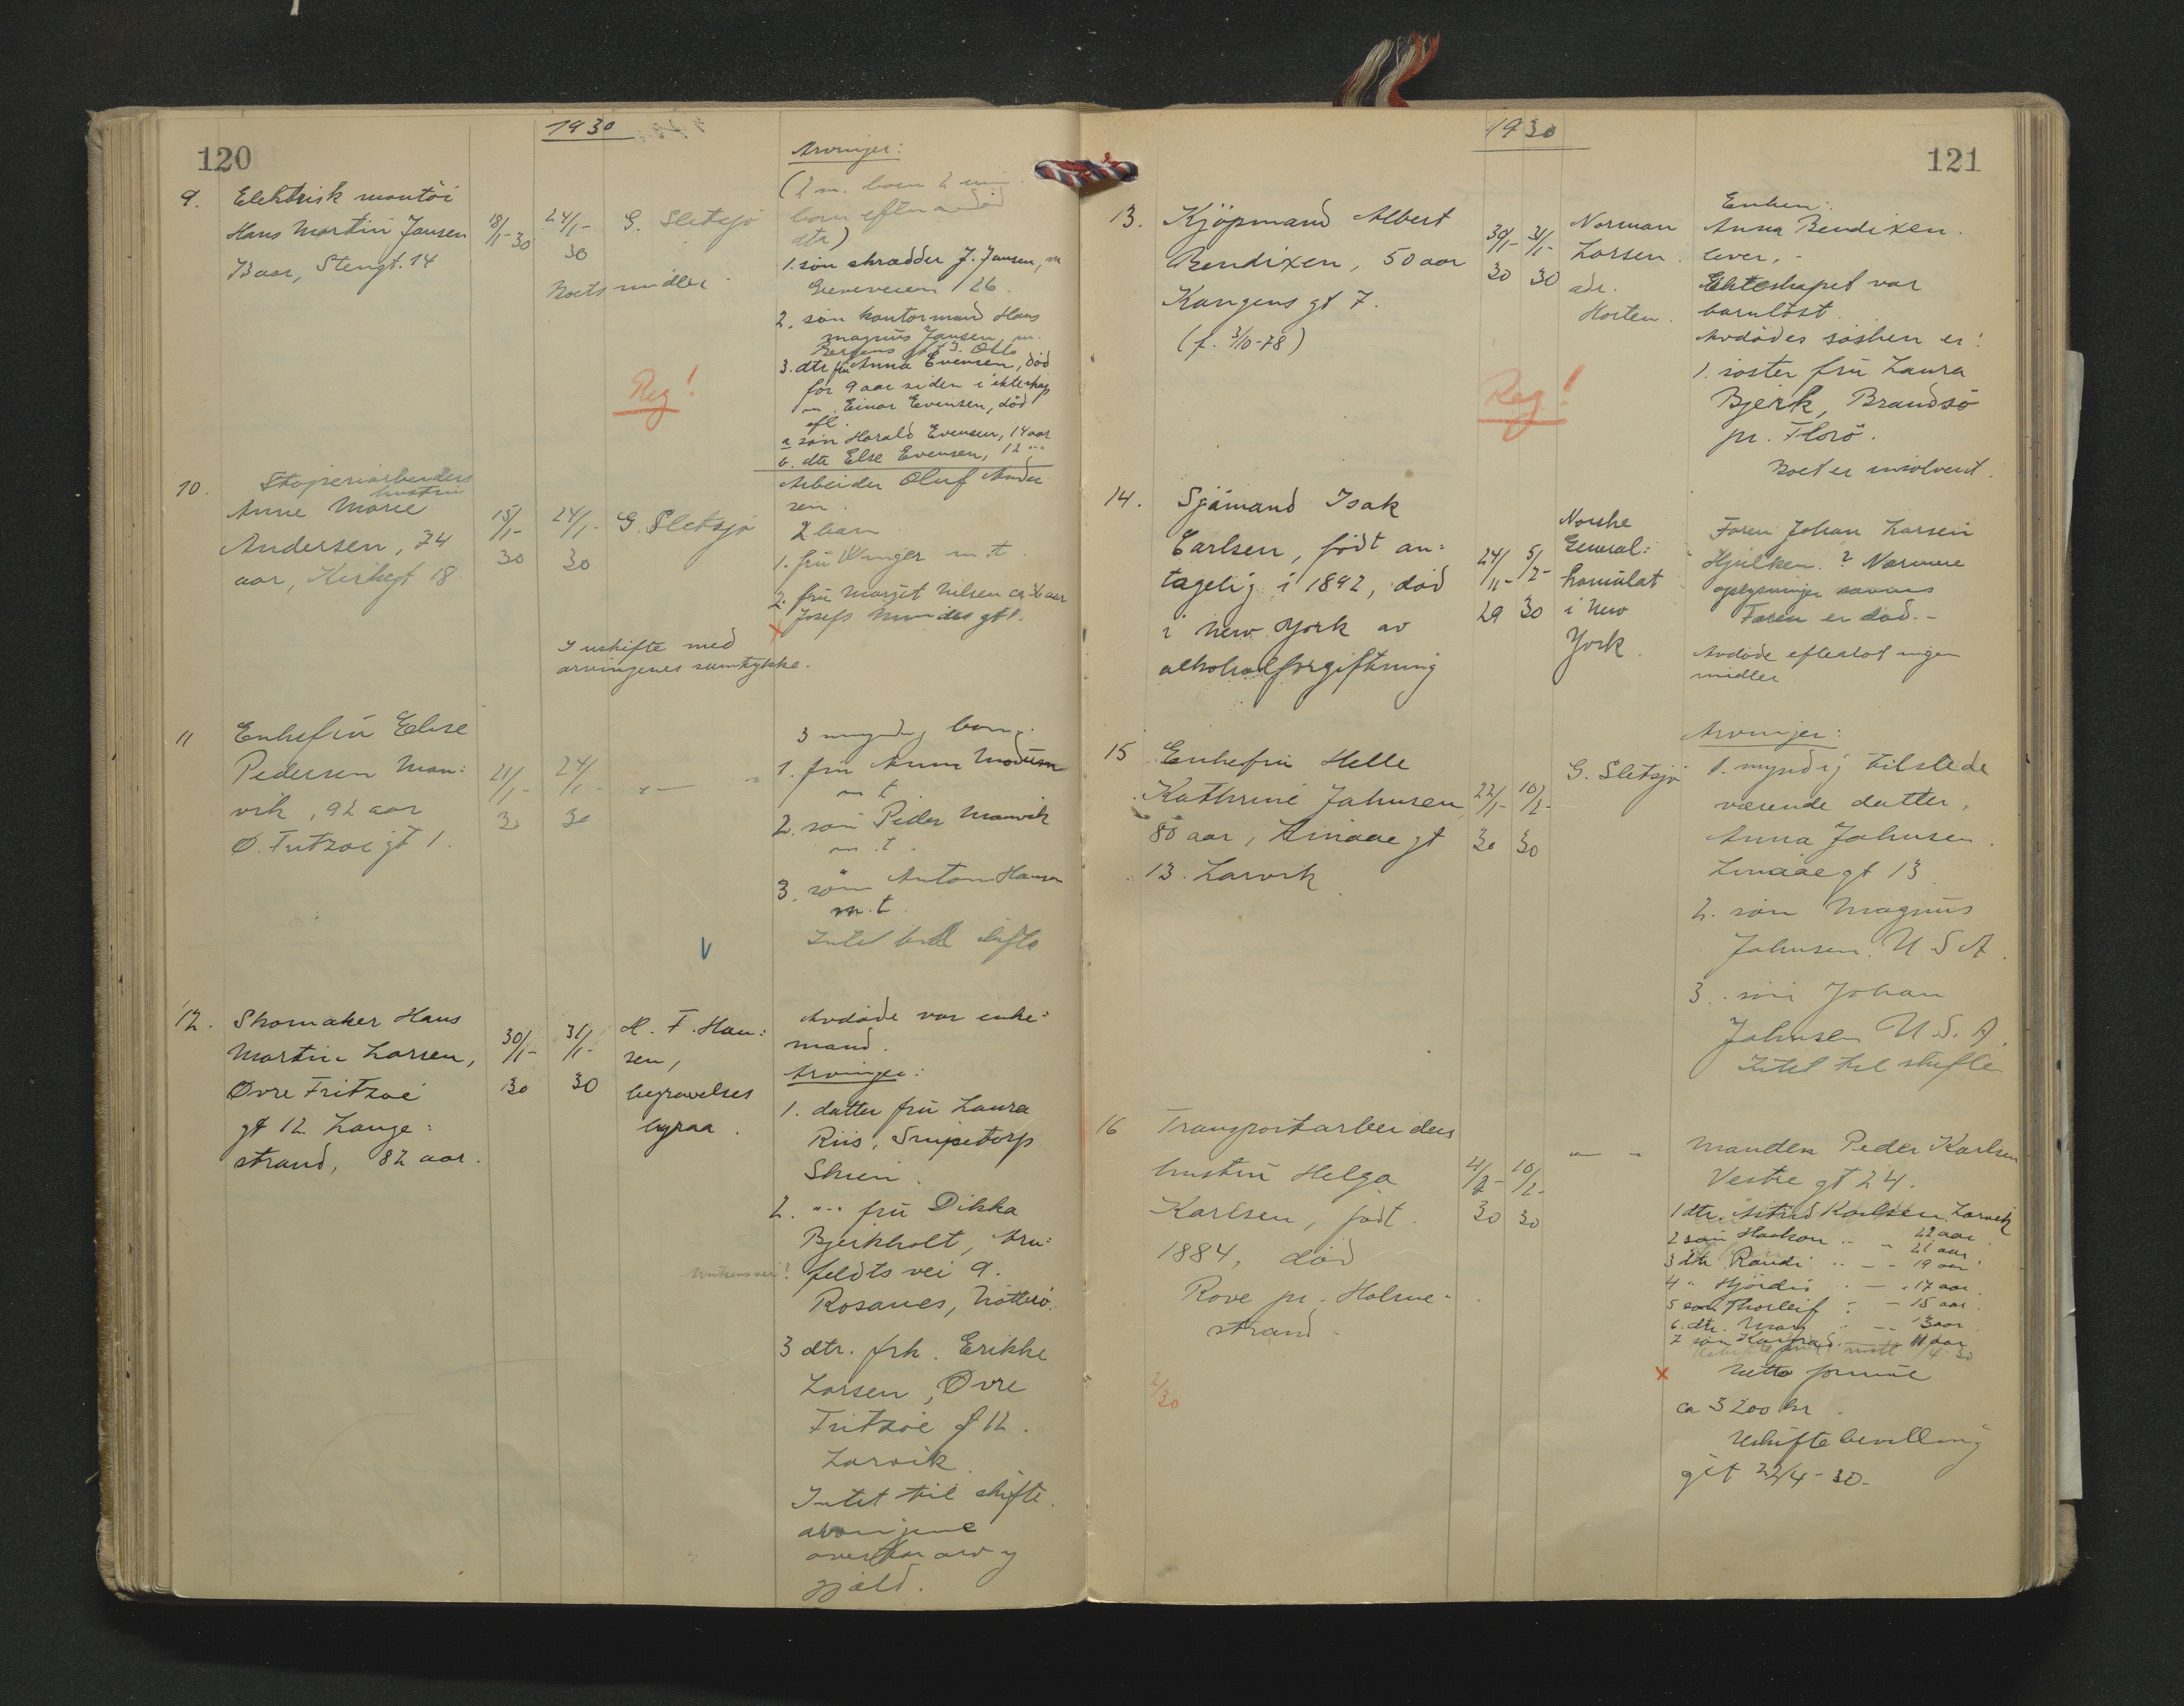 120
1930
9. Elektrisk montör
Hans Martin Jansen
73 aar, Stengt. 14
18/1-30
24/1-30
G. Sletsjø
Boets midler
Reg!
Arvinger:
(2 m. barn 2 min
barn efter avdød
dtr)
1. søn skrædder J. Jansen,
Greveveien 126.
2. søn kontormand Hans
Magnus Jansen, m.
Bergens gt 3. Oslo
3. dtr fru Anna Evensen, død
for 9 aar siden i ekteskap
m. Einar Evensen, død
efl.
a søn Harald Evensen, 14 aar
b. dtr Else Evensen, 12 "
10. Støperiarbeiders
hustru
Anne Marie
Andersen, 74
aar, Kirkegt 18
15/1-30
24/1-30
G. Sletsjø
I uskifte med
arvingenes samtykke.
Arbeider Oluf Ander
sen.
2 barn
1. fru Winger m.t.
2. fru Marget Nilsen ca 36 aar
Josefs Minnes gt 1.
x
11 Enkefru Elise
Pedersen Man:
vik, 92 aar
Ø. Fritzøe gt 1.
21/1-30
24/1-30
" — "
3 myndig barn.
1. fru Anna Modum
m t
2. søn Peder Manvik
m.t.
3. søn Anton Hansen
m.t.
Intet til skifte
12. Skomaker Hans
Martin Larsen,
Øvre Fritzøe
gt 12 Lange:
strand, 82 aar.
30/1-30
31/1-30
H. F. Han:
sen,
begravelses
byraa.
Avdøde var enke:
mand.
Arvinger:
1. datter fru Laura
Riis, Snipetorp
Skien.
2. " fru Dikka
Bjerkholt,
feldts vei 9.
Rosanes, Nøtterö.
3 dtr. frk. Erikke
Larsen, Øvre
Fritzøe gt 12.
Larvik
Intet til skifte.
arvingene
overtar arv og
gjæld.
121
1930
13. Kjöpmand Albert
Bendixen, 50 aar
Kongens gt 7.
(f. 3/10-78)
30/1-30
31/1-30
Norman
Larsen.
adr.
Horten.
Reg!
Enken:
Anna Bendixen.
lever, -
Ekteskapet var
barnløst.
Avdödes sösken er:
1. söster fru Laura
Bjerk, Brandsö
pr. Florö.
Boet er insolvent.
14. Sjömand Isak
Carlsen, født an:
tagelig i 1892, død
i New York av
alkoholforgiftning
24/11-29
5/2-30
Norske
General:
konsulat
i New
York.
Faren Johan Larsen
Hjulken. ? Nærmere
oplysninger savnes
Faren er død. -
Avdøde efterlot ingen
midler
15 Enkefru Helle
Kathrine Johnsen,
80 aar, Linaae gt
13. Larvik
22/1-30
10/2-30
G. Sletsjø
Arvinger:
1. myndig tilstede
værende datter,
Anna Johnsen.
Linaae gt 13
2. søn Magnus
Johnsen. U S A.
3. søn Johan
Johnsen U.S.A.
Intet til skifte
16 Transportarbeiders
hustru Helga
Karlsen, født.
1884, død
Rove pr. Holme-
strand.
4/2-30
10/2-30
" — "
2/30
Manden Peder Karlsen
Vestre gt 24.
1 dtr. Astrid Karlsen Larvik
2 søn Haakon " - 22 aar
21 aar
3 dtr Randi " - - 19 aar
4 " Hjördis " - - 17 aar
5 søn Thorleif " - 15 aar.
6. dtr. Mary " - 13 aar
7 søn Konrad. 11 aar
x Netto formue
ca 3200 kr.
Uskiftebevilling
git 22/4-30-